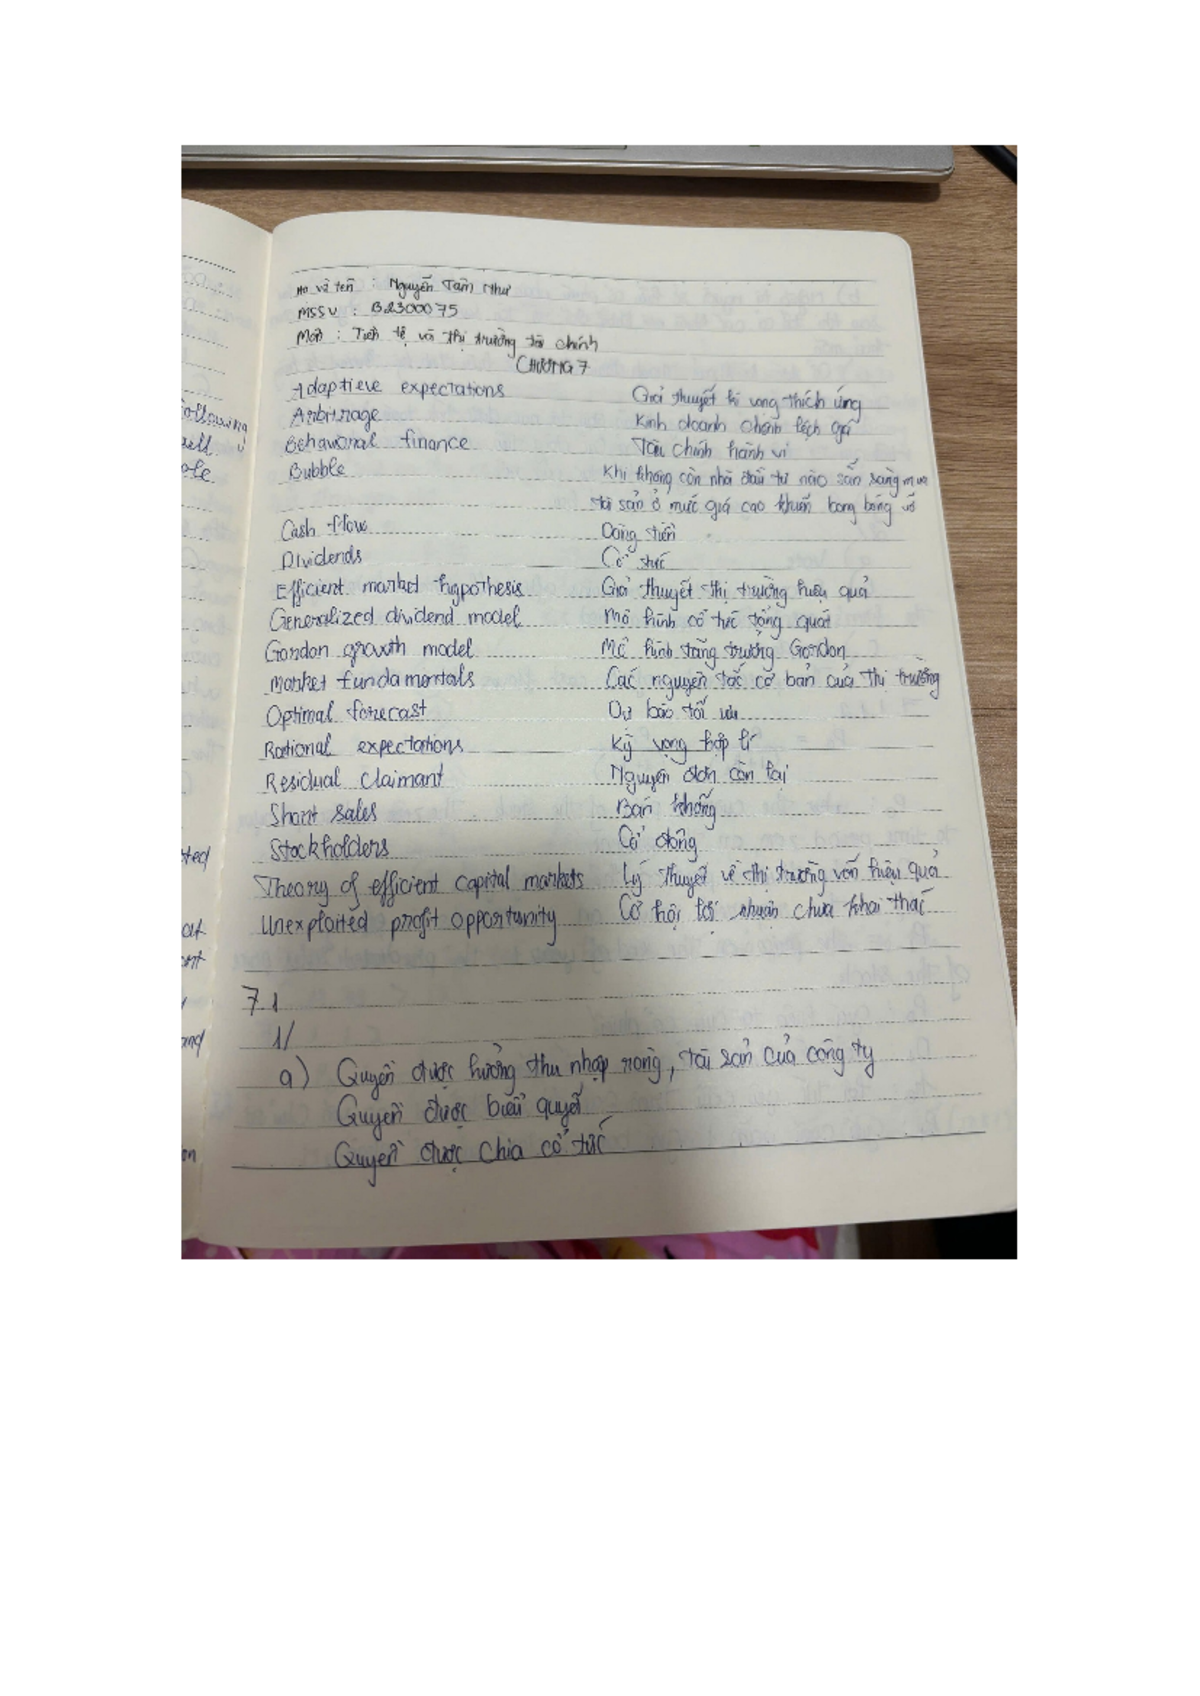 Họ và tên : Nguyễn Tâm Như
MSSV : B2300075
Môn : Tiền tệ và thị trường tài chính
CHƯƠNG 7
Adaptieve expectations Giả thuyết kì vọng thích ứng
Arbitrage Kinh doanh chênh lệch giá
Behavional finance Tài chính hành vi
Bubble Khi không còn nhà đầu tư nào sẵn sàng mua
tài sản ở mức giá cao khiến bong bóng vỡ
Cash flow Dòng tiền
Dividends Cổ tức
Efficient market hypothesis Giả thuyết thị trường hiệu quả
Generalized dividend model Mô hình cổ tức tổng quát
Gordon growth model Mô hình tăng trưởng Gordon
Market fundamentals Các nguyên tắc cơ bản của thị trường
Optimal forecast Dự báo tối ưu
Rational expectations Kỳ vọng hợp lí
Residual Claimant Nguyên đơn còn lại
Short sales Bán khống
Stockholders Cổ đông
Theory of efficient capital markets Lý thuyết về thị trường vốn hiệu quả
Unexploited profit opportunity Cơ hội lợi nhuận chưa khai thác
7.1
1/
a) Quyền được hưởng thu nhập ròng, tài sản của công ty
Quyền được biểu quyết
Quyền được chia cổ tức
following
at
and
on